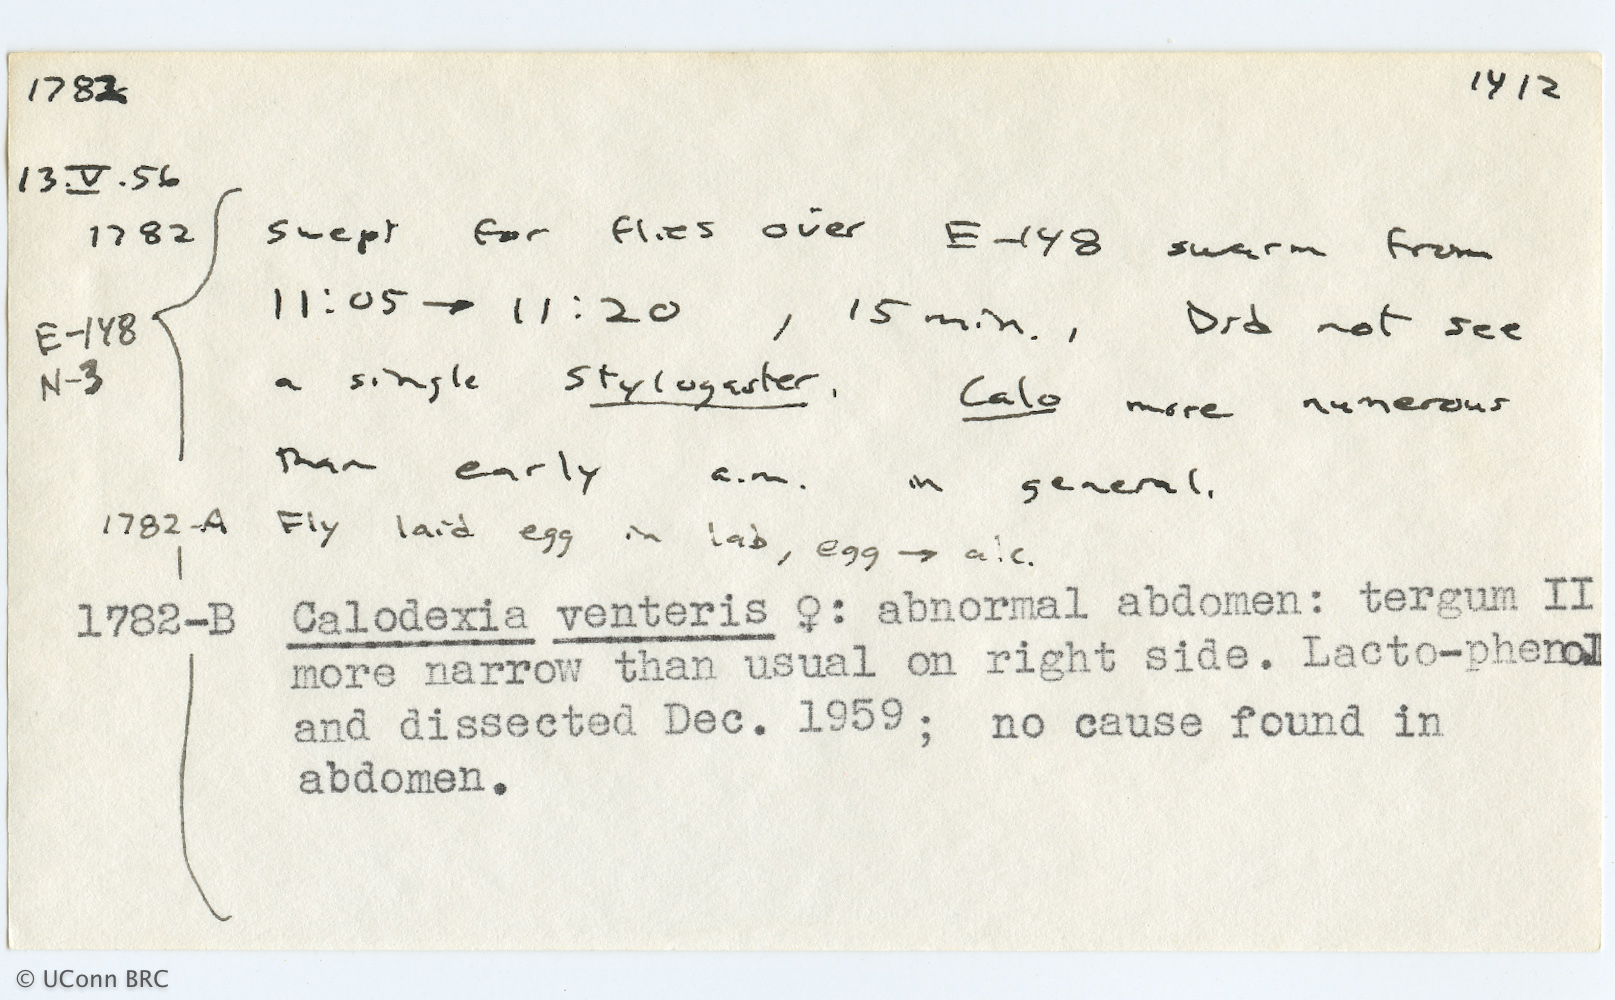 1782 1412
13.V.56
1782 Swept for flies over E-148 swarm from
11:05 → 11:20 , 15 min., Did not see
E-148
N-3 a single Stylogaster. Calo more numerous
than early a.m. in general.
1782-A Fly laid egg in lab, egg → alc.
1782-B Calodexia venteris ♀: abnormal abdomen: tergum II
more narrow than usual on right side. Lacto-phenol
and dissected Dec. 1959; no cause found in
abdomen.
© UConn BRC